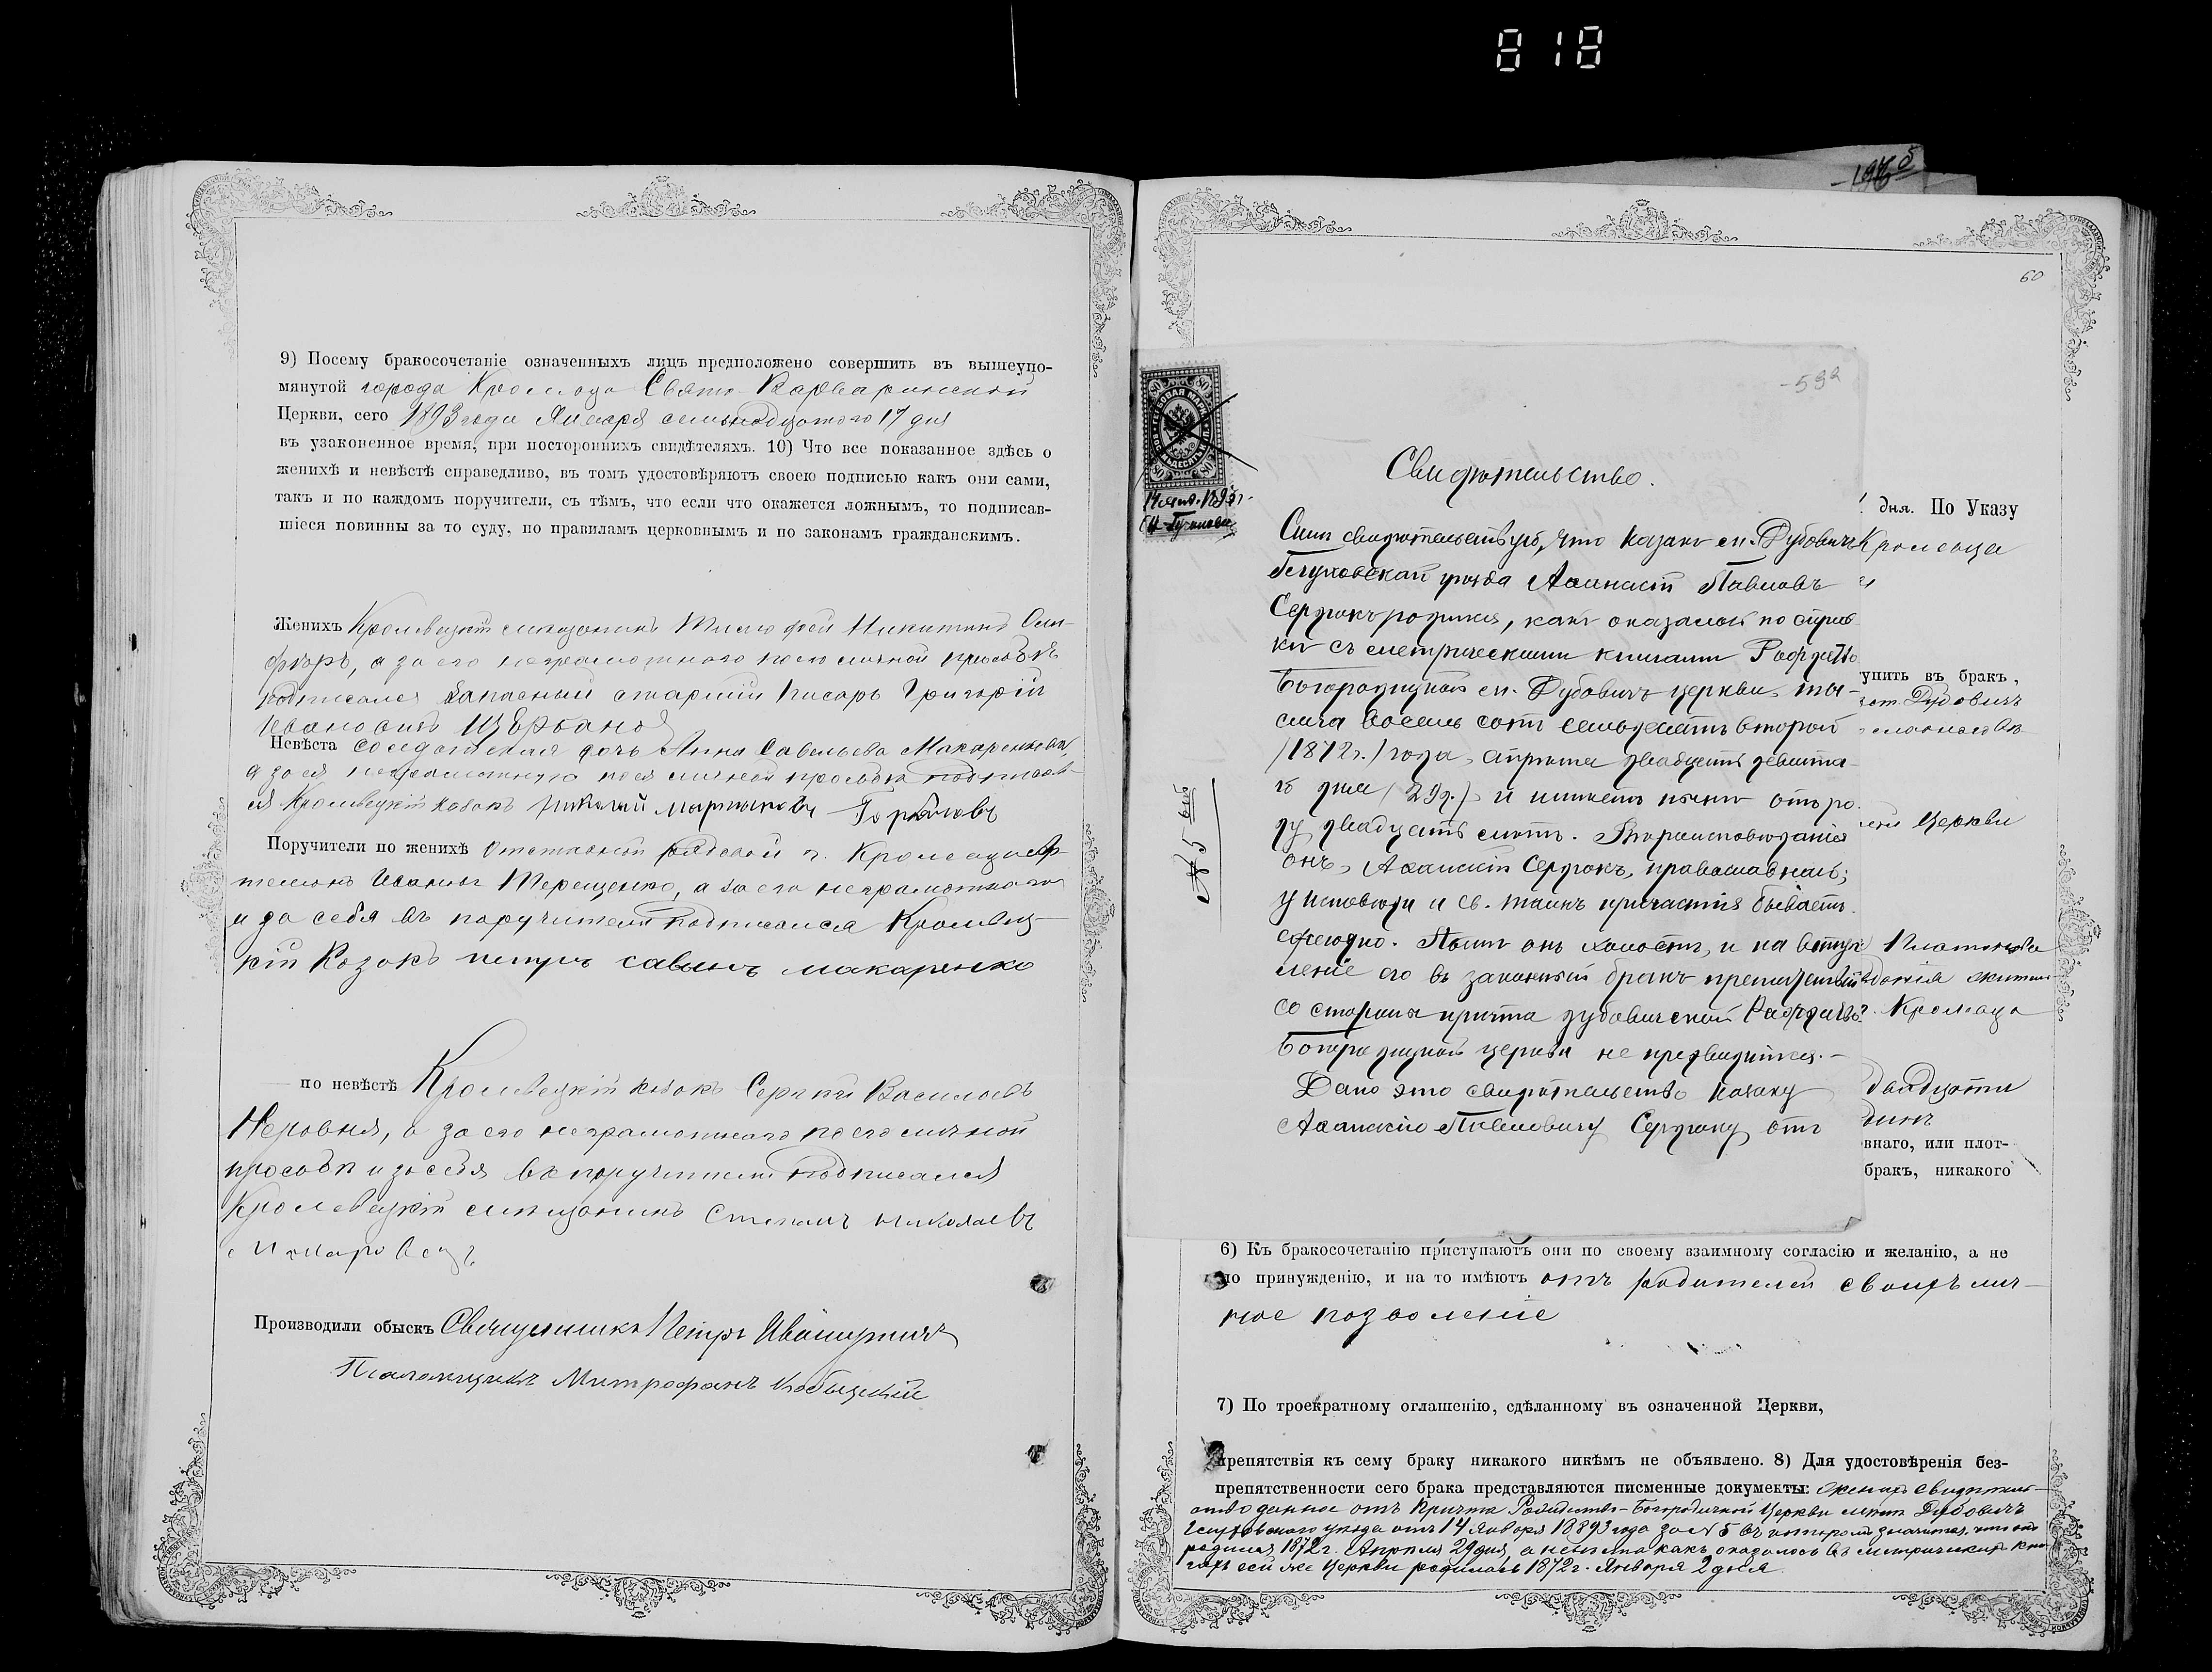 818
9) Посему бракосочетаніе означенныхъ лицъ предположено совершить въ вышеупо-
мянутой города Кролевца Свято-Варваринской
Церкви, сего 1893 года Января семьнадцатого 17 дня
въ узаконенное время, при постороннихъ свидѣтеляхъ. 10) Что все показанное здѣсь о
женихѣ и невѣстѣ справедливо, въ томъ удостовѣряютъ своею подписью какъ они сами,
такъ и по каждомъ поручители, съ тѣмъ, что если что окажется ложнымъ, то подписав-
шіеся повинны за то суду, по правиламъ церковнымъ и по законамъ гражданскимъ.
Женихъ Кролевецкій мещанинъ Никитинъ
а за его неграмотного по его личной просьбѣ
подписался Запасный старшій писарь Григорій
Ивановичъ
Невѣста солдатская дочь Анна Савельева Макаренкова,
а за ея неграмотную по ея личной просьбѣ подписал-
ся Кролевецкій козакъ Николай Мартыновъ Горбачовъ
Поручители по женихѣ Отставной рядовой г. Кролевца
Иванъ Терещенко, а за его неграмотного
и за себя въ поручители подписался Кролевец-
кій Козакъ петръ савинъ макаренко
по невѣстѣ Кролевецкій козакъ Сергій Василіевъ
Неровня, а за его неграмотного по его личной
просьбѣ и за себя въ поручители подписался
Кролевецкій мещанинъ Степанъ Николаевъ
Производили обыскъ Священникъ Петръ
Псаломщикъ Митрофанъ
-197б
60
-59а
14 янв. 1893 г.
№ 5
Свидѣтельство.
Симъ свидѣтельствую, что казакъ м. Дубовичъ
Глуховскаго уѣзда Аѳанасій Павловъ
Сердюкъ родился, какъ оказалось по справ
кѣ съ метрическими книгами Рождество
Богородицкой м. Дубовичъ церкви, ты-
сяча восемь сотъ семьдесятъ второй
/1872 г./ года, Апрѣля двадцать девята-
го дня (29 д.) и имѣетъ нынѣ отъ ро-
ду двадцать лѣтъ. Вѣроисповѣданія
онъ, Аѳанасій Сердюкъ, православнаго;
у исповѣди и св. таинъ причастія бываетъ
ежегодно. Нынѣ онъ холостъ, и на вступ
леніе его въ законный бракъ препятствій
со стороны причта дубовичской Рождество
Богородицкой церкви не предвидится.-
Дано это свидѣтельство казаку
Аѳанасію Павловичу Сердюку отъ
дня. По Указу
Кролевца
упить въ бракъ,
Дубовичъ
Церкви
Кролевца
двадцати
внаго, или плот-
бракъ, никакого
6) Къ бракосочетанію приступаютъ они по своему взаимному согласію и желанію, а не
по принужденію, и на то имѣютъ отъ родителей своихъ лич-
ное позволеніе
7) По троекратному оглашенію, сдѣланному въ означенной Церкви,
препятствія къ сему браку никакого никѣмъ не объявлено. 8) Для удостовѣренія без-
препятственности сего брака представляются писменные документы: жениха свидѣтель-
ство данное отъ Причта Рождество-Богородичной Церкви мест. Дубовичъ
Глуховского уѣзда отъ 14 Января 1893 года за № 5 въ которомъ значится, что онъ
родился 1872 г. Апрѣля 29 дня, а невѣста какъ оказалось въ метрическихъ кни-
гахъ сей же Церкви родилась 1872 г. Января 2 дня